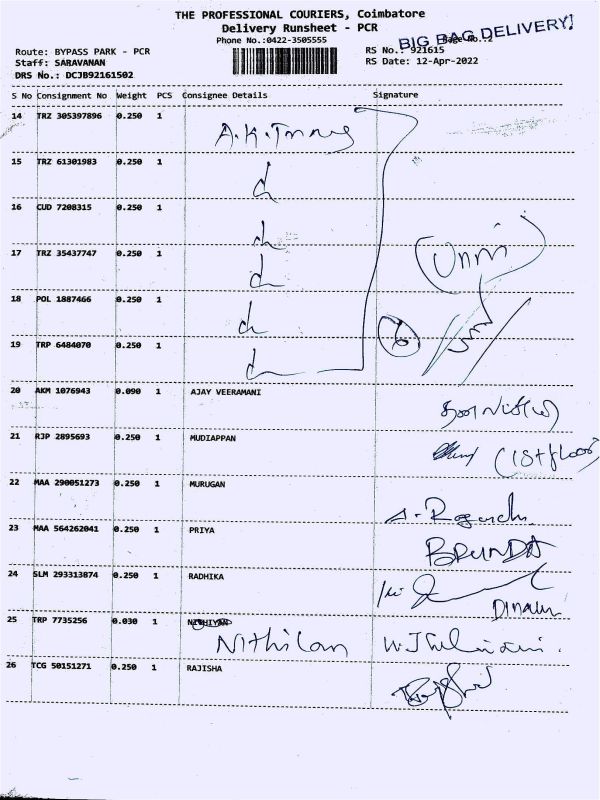 THE PROFESSIONAL COURIERS, Coimbatore
Delivery Runsheet - PCR
Phone No.:0422-3505555
BIG BAG DELIVERY
Route: BYPASS PARK - PCR
RS No.: 921615
Staff: SARAVANAN
RS Date: 12-Apr-2022
DRS No.: DCJB92161502
S No Consignment No Weight PCS Consignee Details Signature
14 TRZ 305397896 0.250 1
15 TRZ 61301983 0.250 1
16 CUD 7208315 0.250 1
17 TRZ 35437747 0.250 1
18 POL 1887466 0.250 1
19 TRP 6484070 0.250 1
20 AKM 1076943 0.090 1 AJAY VEERAMANI
21 RJP 2895693 0.250 1 MUDIAPPAN (1st floor)
22 MAA 290051273 0.250 1 MURUGAN
23 MAA 564262041 0.250 1 PRIYA BRUNDA
24 SLM 293313874 0.250 1 RADHIKA
25 TRP 7735256 0.030 1 NITHIYAN
Nithilan
26 TCG 50151271 0.250 1 RAJISHA